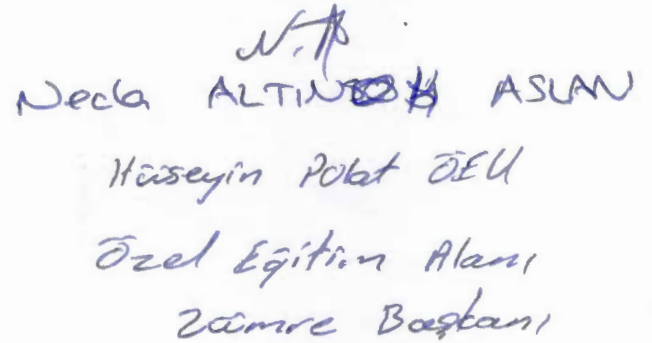 N.A.
Necla ALTIN ASLAN
Hüseyin Polat ÖEU
Özel Eğitim Alanı
Zümre Başkanı